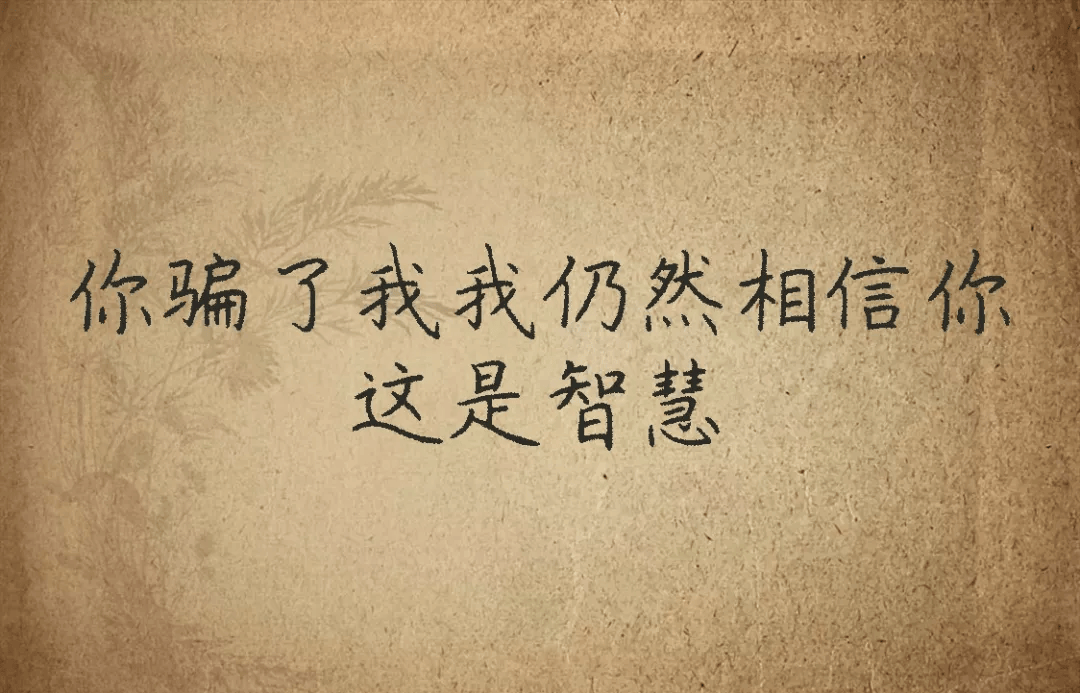 你骗了我我仍然相信你
这是智慧